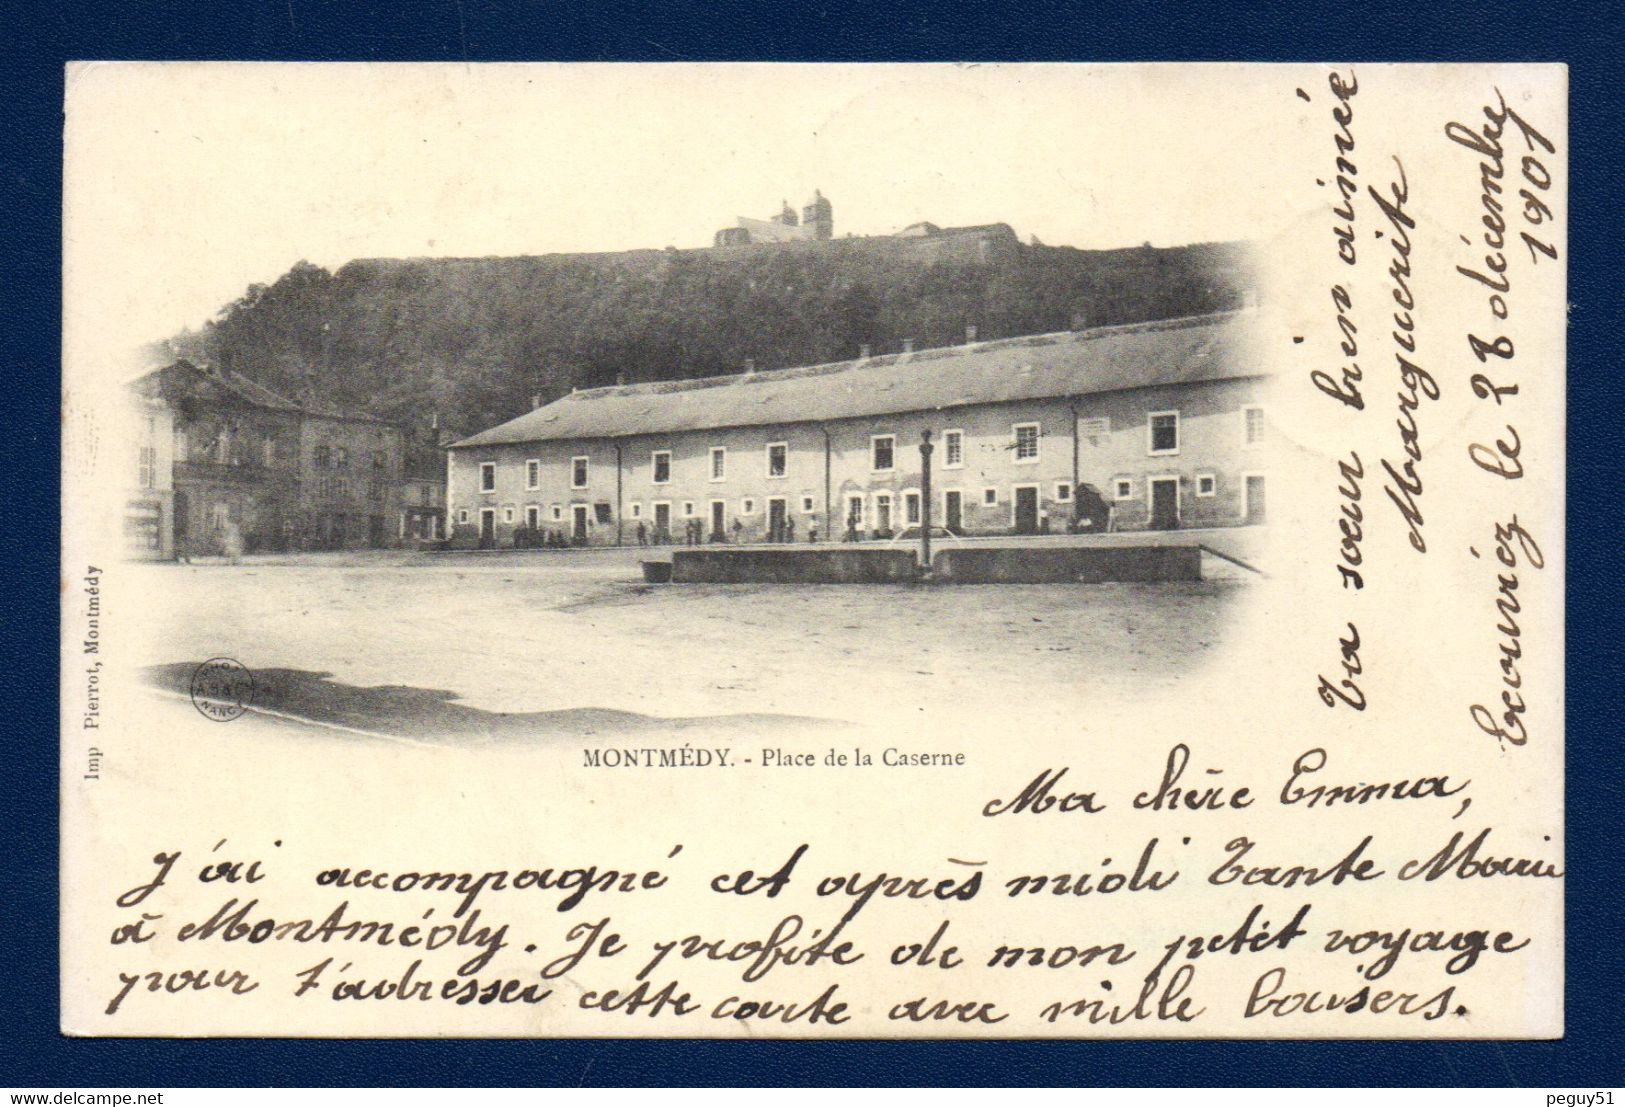 Imp Pierrot, Montmédy
PHOT
A.B & C
NANCY
MONTMÉDY. - Place de la Caserne
Ma chère Emma,
J'ai accompagné cet après midi Tante Marie
à Montmédy. Je profite de mon petit voyage
pour t'adresser cette carte avec mille baisers.
Ta sœur bien aimée
Marguerite
Ecouviez le 28 décembre
1901
peguy51